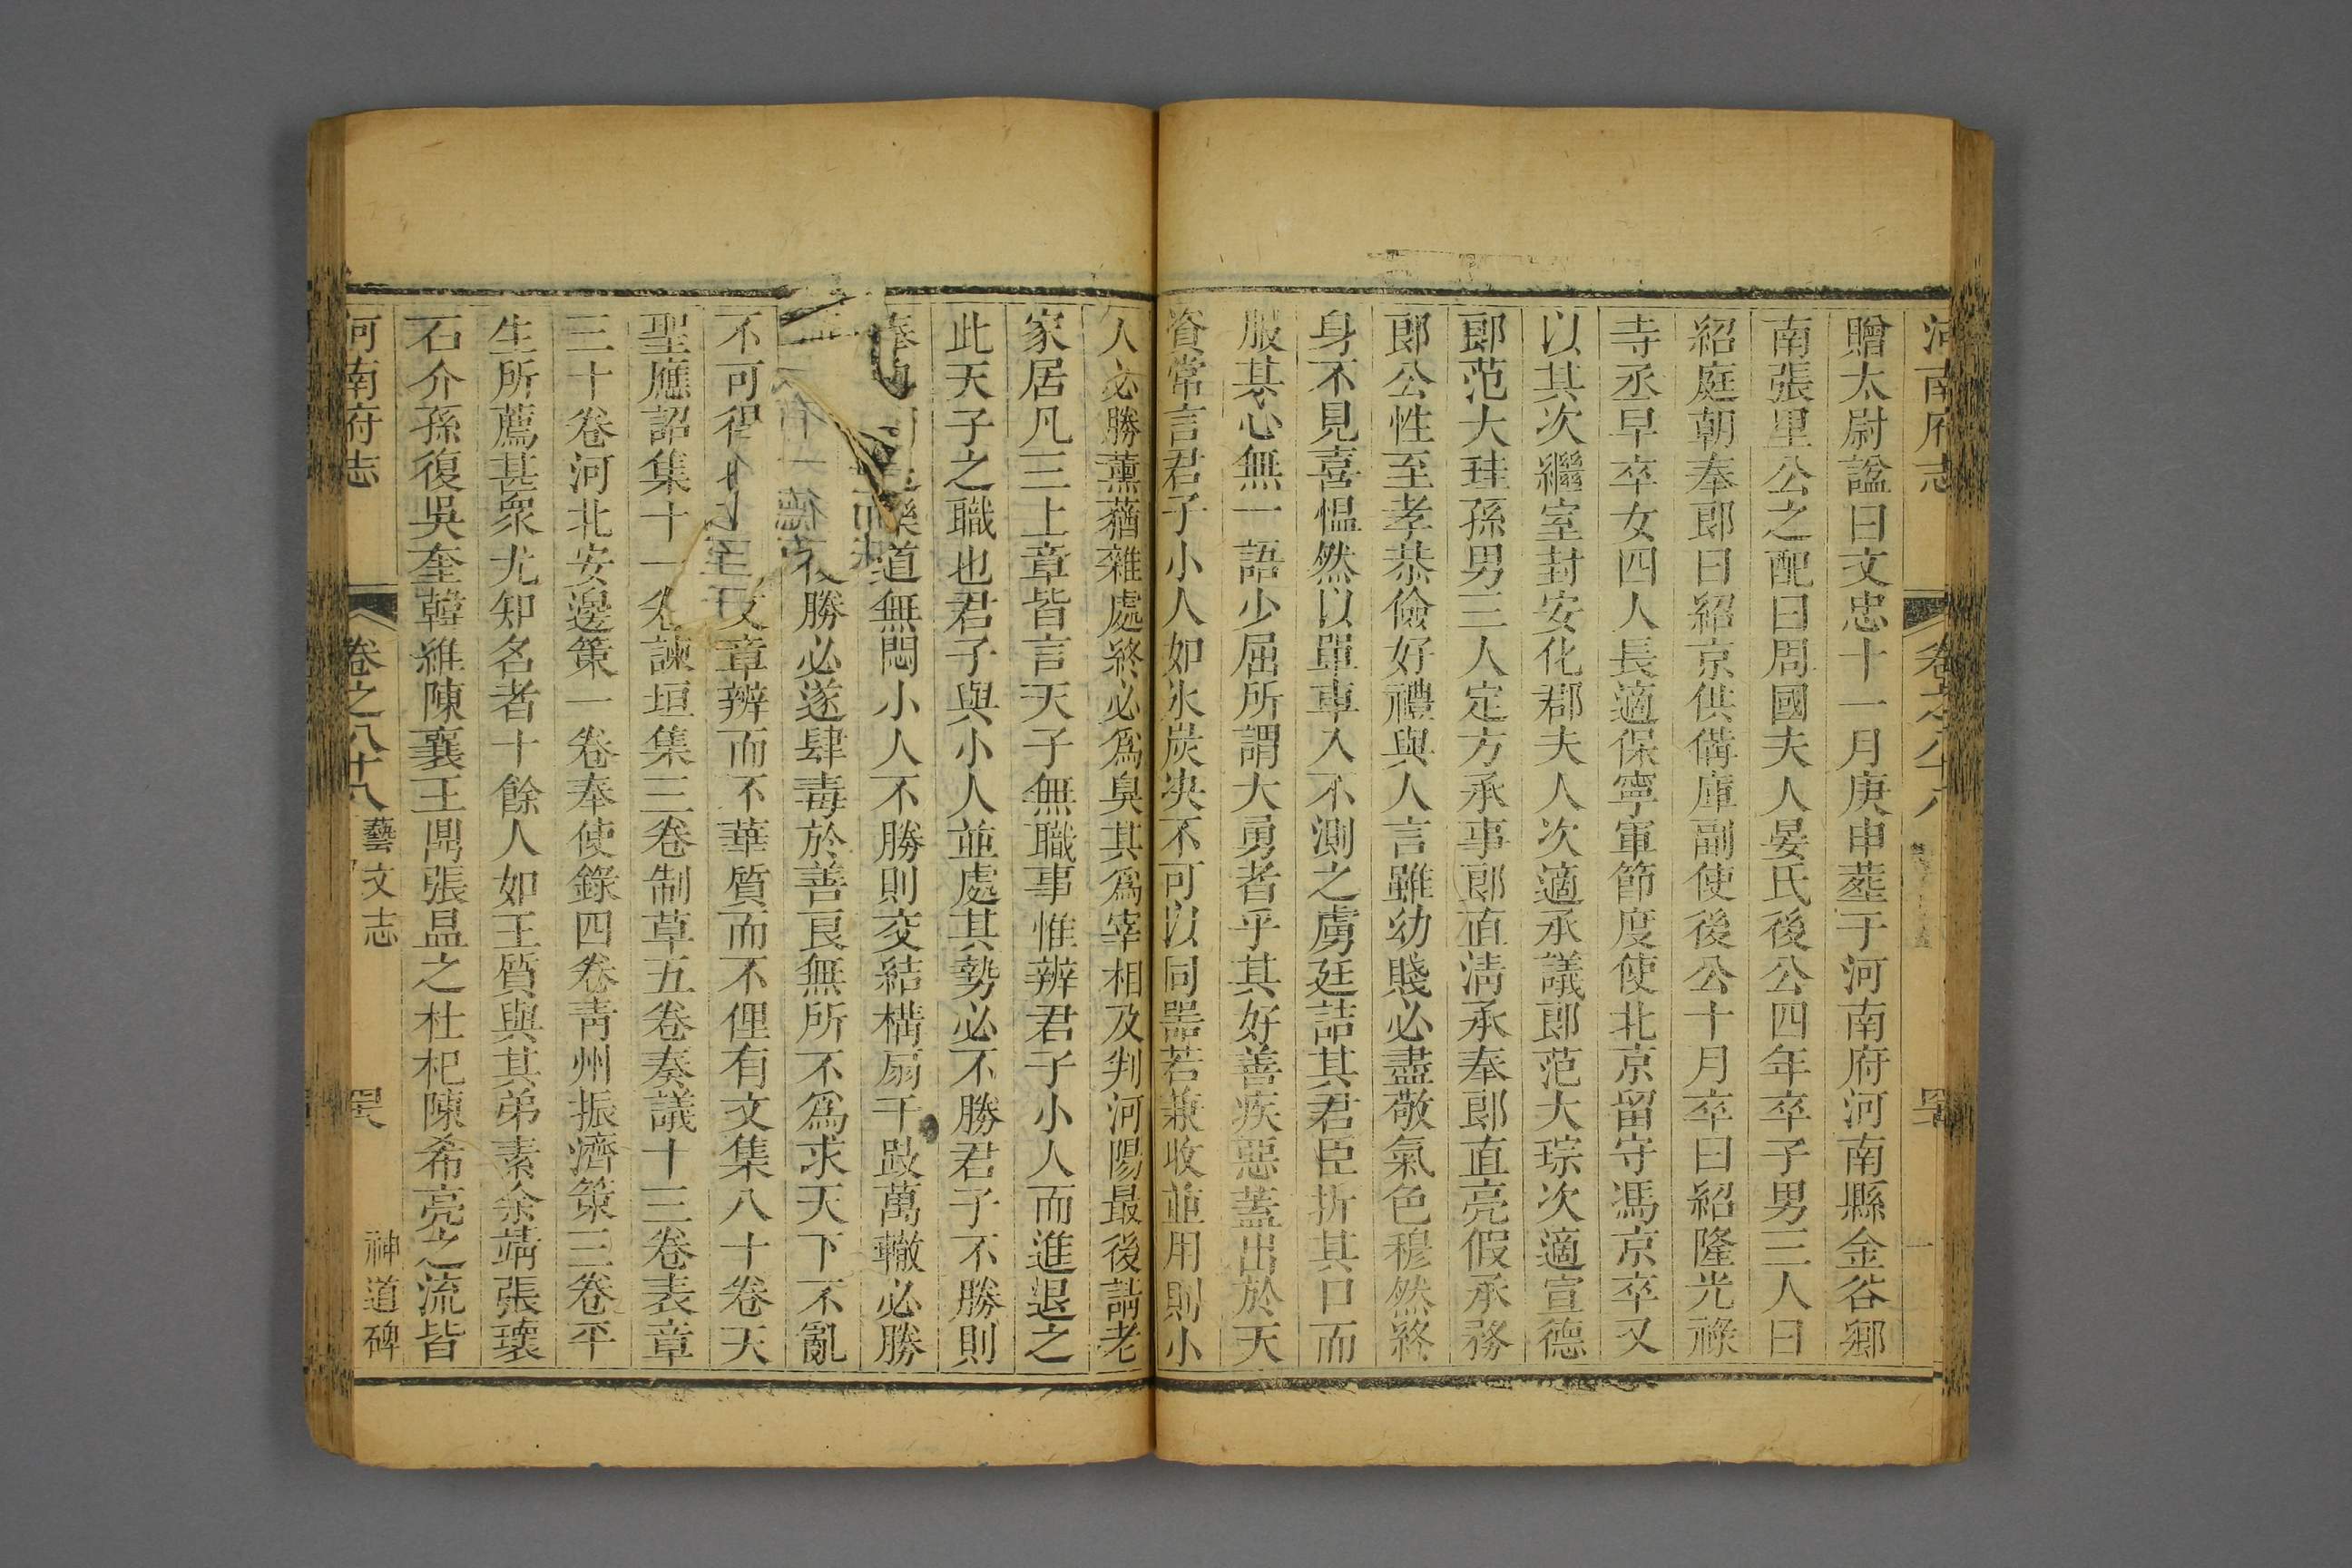 河南府志 卷之八十八
贈太尉諡曰文忠十一月庚申葬于河南府河南縣金谷鄉
南張里公之配曰周國夫人晏氏後公四年卒子男三人曰
紹庭朝奉郎曰紹京供備庫副使後公十月卒曰紹隆光祿
寺丞早卒女四人長適保寧軍節度使北京留守馮京卒又
以其次繼室封安化郡夫人次適承議郎范大琮次適宣德
郎范大珪孫男三人定方承事郎直淸承奉郎直亮假承務
郎公性至孝恭儉好禮與人言雖幼賤必盡敬氣色穆然終
身不見喜愠然以單車入不測之虜廷詰其君臣折其口而
服其心無一語少屈所謂大勇者乎其好善疾惡蓋出於天
資常言君子小人如氷炭决不可以同器若兼收並用則小
人必勝薰蕕雜處終必爲臭其爲宰相及判河陽最後請老
家居凡三上章皆言天子無職事惟辨君子小人而進退之
此天子之職也君子與小人並處其勢必不勝君子不勝則
奉道無悶小人不勝則交結構扇千跂萬轍必勝
勝必遂肆毒於善良無所不爲求天下不亂
不可得文章辨而不華質而不俚有文集八十卷天
聖應詔集十一卷諫垣集三卷制草五卷奏議十三卷表章
三十卷河北安邊策一卷奉使錄四卷靑州振濟策三卷平
生所薦甚衆尤知名者十餘人如王質與其弟素余靖張瓌
石介孫復吳奎韓維陳襄王鼎張昷之杜杞陳希亮之流皆
河南府志 卷之八十八 藝文志 神道碑